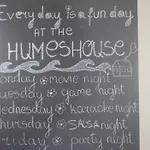 Everyday is a fun day
AT THE
HUMESHOUSE
onday movie night
uesday game night
Wednesday karaoke night
hursday SALSA night
riday party night